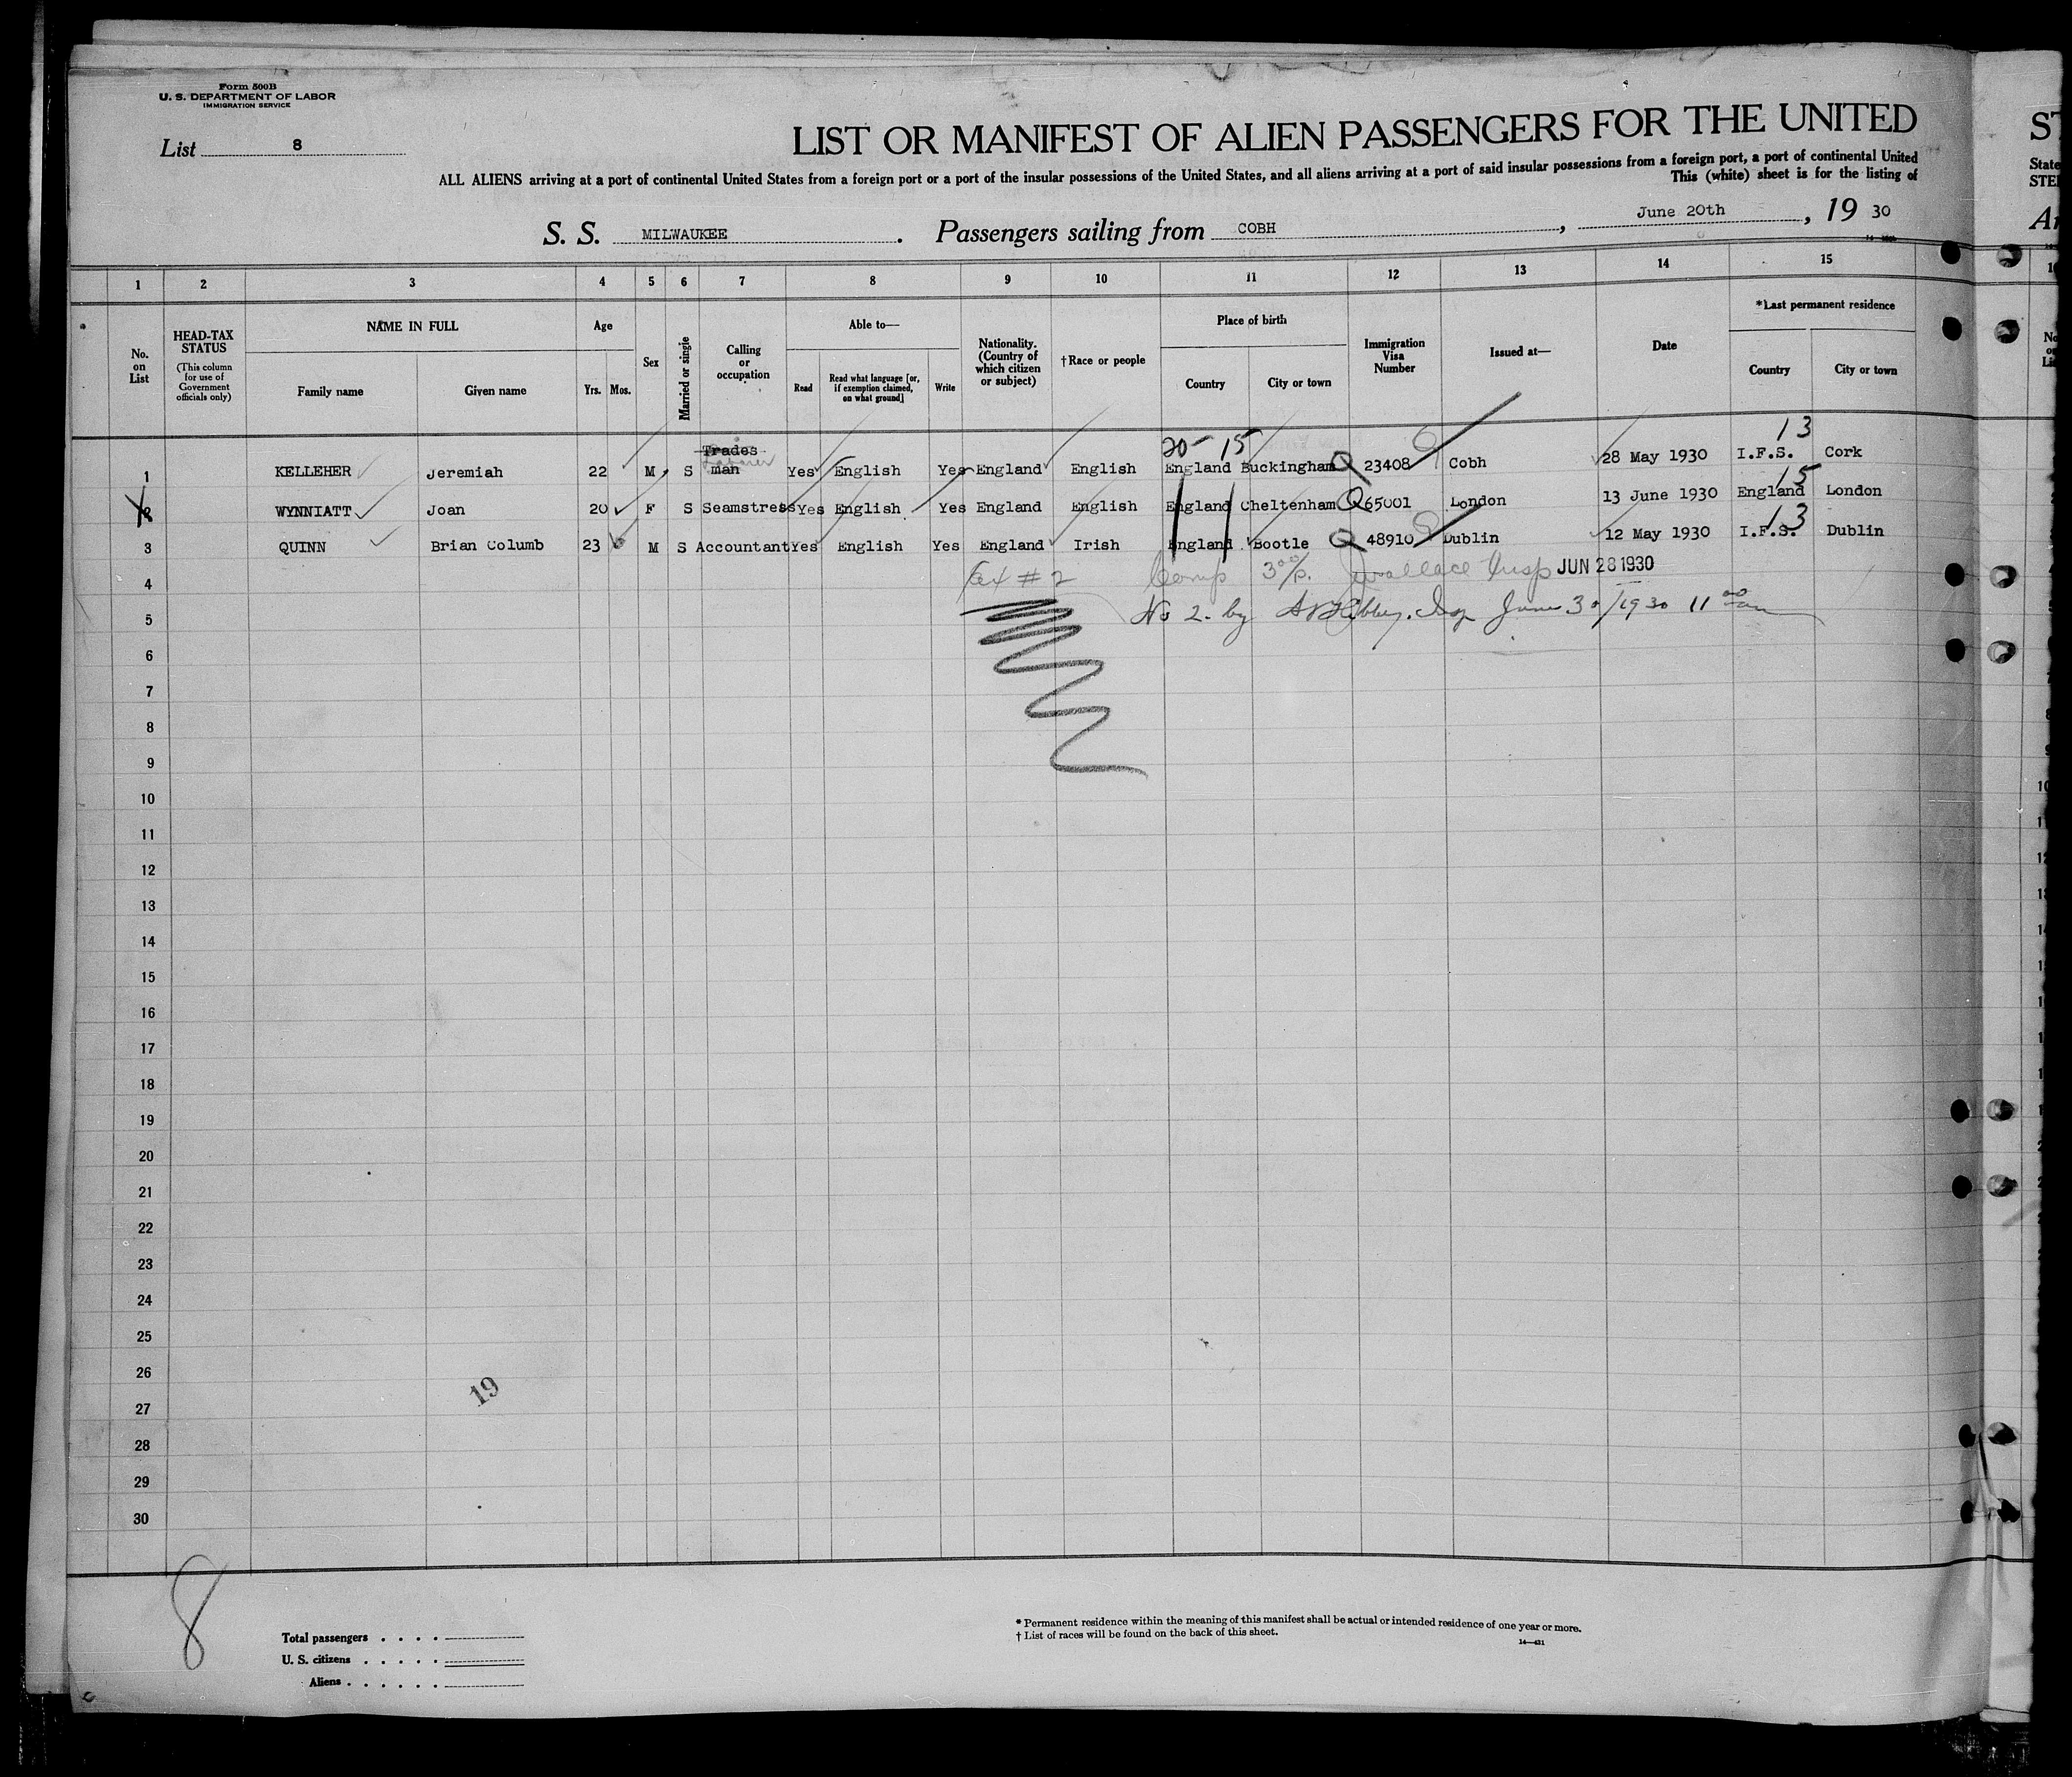 Form 500B
U. S. DEPARTMENT OF LABOR
IMMIGRATION SERVICE
List 8
LIST OR MANIFEST OF ALIEN PASSENGERS FOR THE UNITED
ST
ALL ALIENS arriving at a port of continental United States from a foreign port or a port of the insular possessions of the United States, and all aliens arriving at a port of said insular possessions from a foreign port, a port of continental United
State
This (white) sheet is for the listing of
STE
S. S. MILWAUKEE. Passengers sailing from COBH, June 20th, 19 30
1 2 3 4 5 6 7 8 9 10 11 12 13 14 15
No. on List
HEAD-TAX STATUS (This column for use of Government officials only)
NAME IN FULL
Family name Given name
Age
Yrs. Mos.
Sex
Married or single
Calling or occupation
Able to—
Read Read what language [or, if exemption claimed, on what ground] Write
Nationality. (Country of which citizen or subject)
†Race or people
Place of birth
Country City or town
Immigration Visa Number
Issued at—
Date
*Last permanent residence
Country City or town
20 15 13
Trades
1 KELLEHER Jeremiah 22 M S man Laborer Yes English Yes England English England Buckingham Q 23408 Cobh 28 May 1930 I.F.S. Cork
15
2 WYNNIATT Joan 20 F S Seamstress Yes English Yes England English England Cheltenham Q 65001 London 13 June 1930 England London
13
3 QUINN Brian Columb 23 M S Accountant Yes English Yes England Irish England Bootle Q 48910 Dublin 12 May 1930 I.F.S. Dublin
4 # 2 Wallace Insp JUN 28 1930
5 No 2. by June 30/1930 11 00 am
6
7
8
9
10
11
12
13
14
15
16
17
18
19
20
21
22
23
24
25
26
27
19
28
29
30
8
Total passengers
U. S. citizens
Aliens
* Permanent residence within the meaning of this manifest shall be actual or intended residence of one year or more.
† List of races will be found on the back of this sheet.
14—431